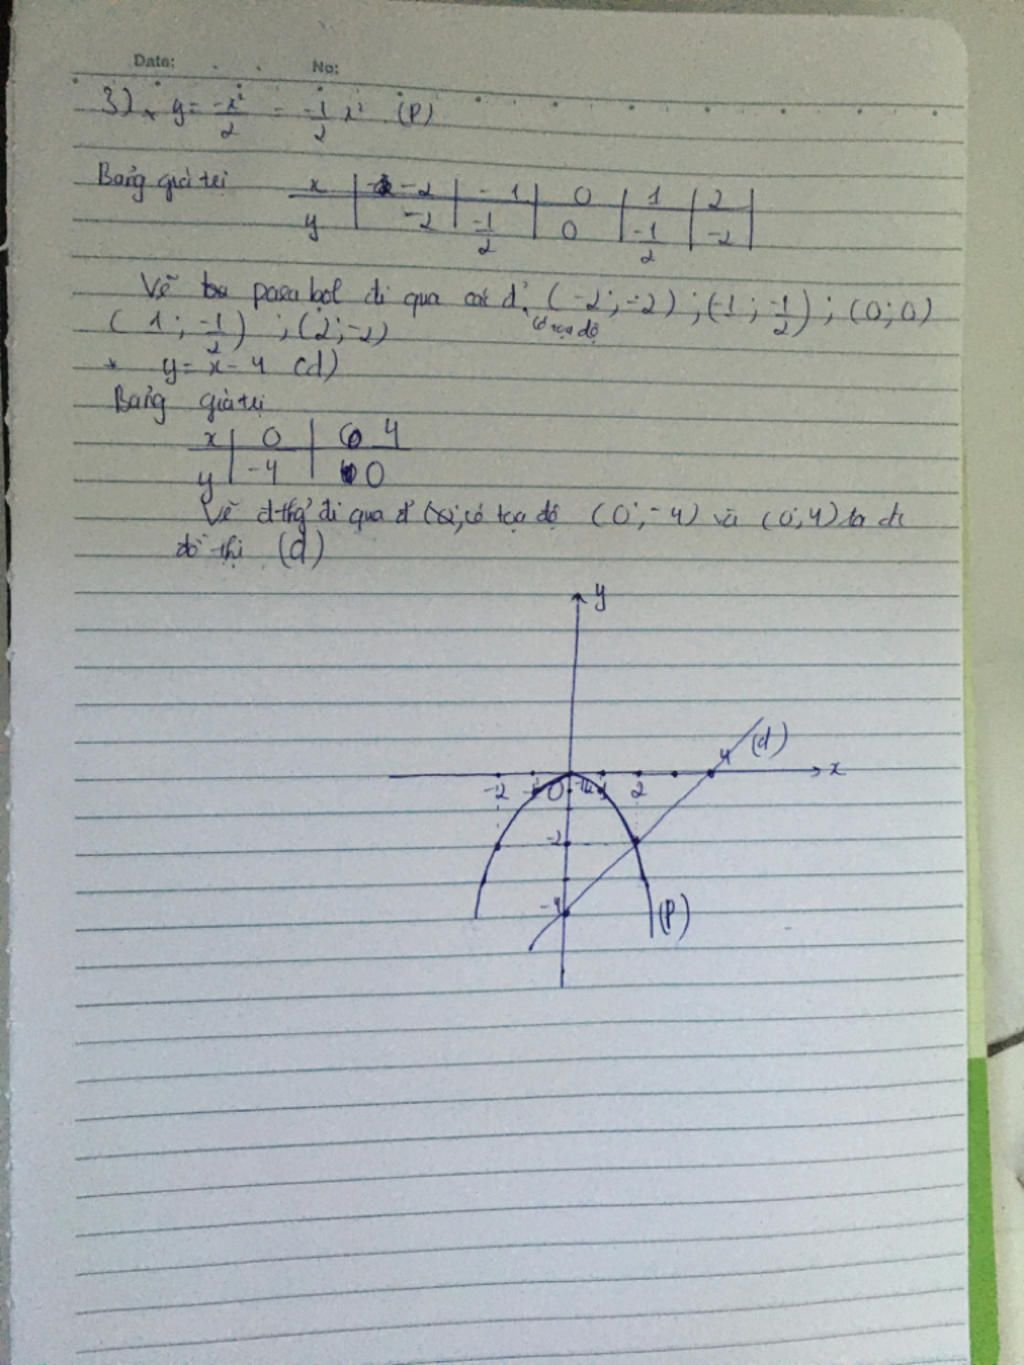 Date: No:
3) * y = -x²/2 = -1/2 x² (P)
Bảng giá trị x | -2 | -1 | 0 | 1 | 2
y | -2 | -1/2 | 0 | -1/2 | -2
Vẽ parabol đi qua các đ' (-2; -2); (-1; -1/2); (0; 0)
có tọa độ
(1; -1/2); (2; -2)
* y = x - 4 (d)
Bảng giá trị
x | 0 | 4
y | -4 | 0
Vẽ đ-thg' đi qua đ' có tọa độ (0; -4) và (0; 4) ta đc
đồ thị (d)
y
(d)
4
-2 -1 0 1 2 x
-2
-4
(P)